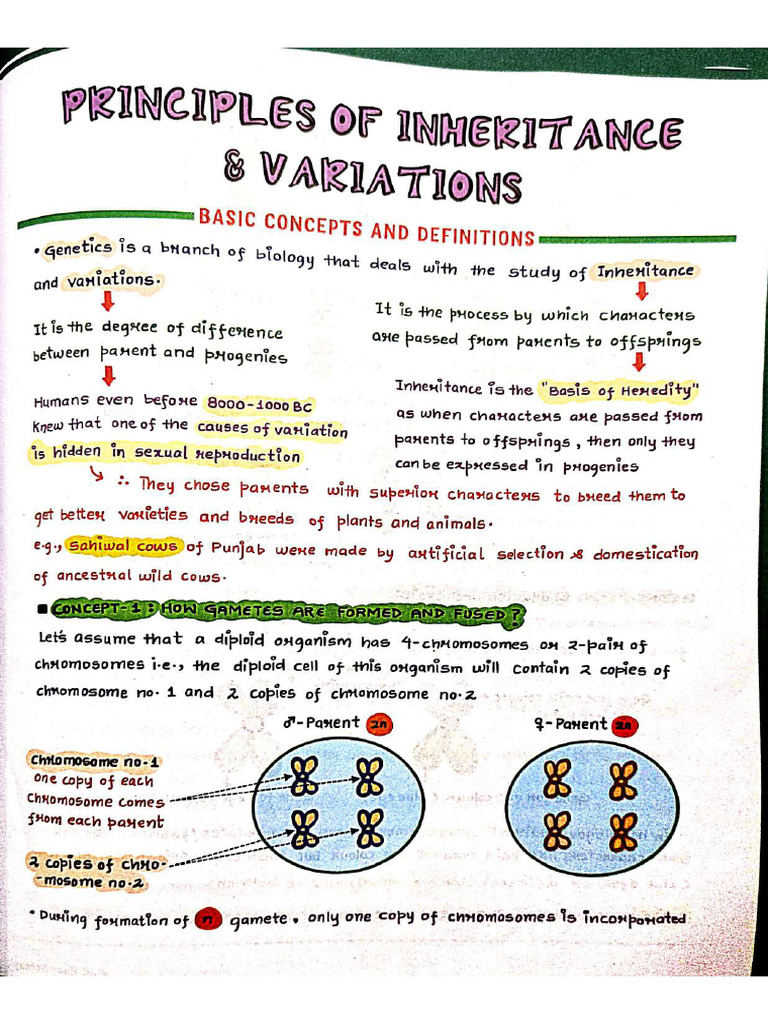 PRINCIPLES OF INHERITANCE
& VARIATIONS
BASIC CONCEPTS AND DEFINITIONS
• Genetics is a branch of biology that deals with the study of Inheritance
and variations.
It is the degree of difference
between parent and progenies
Humans even before 8000-1000 BC
knew that one of the causes of variation
is hidden in sexual reproduction
It is the process by which characters
are passed from parents to offsprings
Inheritance is the "Basis of Heredity"
as when characters are passed from
parents to offsprings, then only they
can be expressed in progenies
∴ They chose parents with superior characters to breed them to
get better varieties and breeds of plants and animals.
e.g., Sahiwal cows of Punjab were made by artificial selection & domestication
of ancestral wild cows.
■ CONCEPT-1: HOW GAMETES ARE FORMED AND FUSED?
Let's assume that a diploid organism has 4-chromosomes or 2-pair of
chromosomes i.e., the diploid cell of this organism will contain 2 copies of
chromosome no. 1 and 2 copies of chromosome no.2
♂-Parent 2n
♀-Parent 2n
Chromosome no-1
one copy of each
chromosome comes
from each parent
2 copies of chro-
-mosome no.2
• During formation of n gamete, only one copy of chromosomes is incorporated